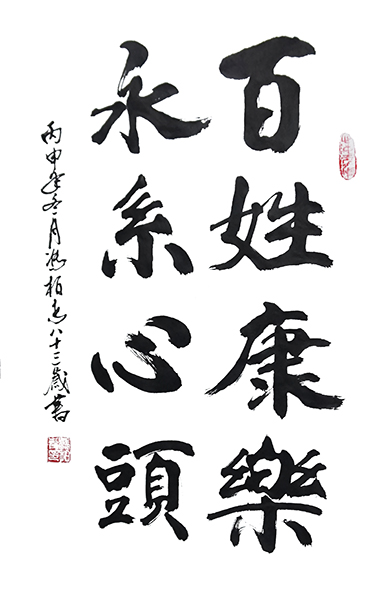 百姓康樂
永系心頭
丙申年冬月馮柏志八十三歲書